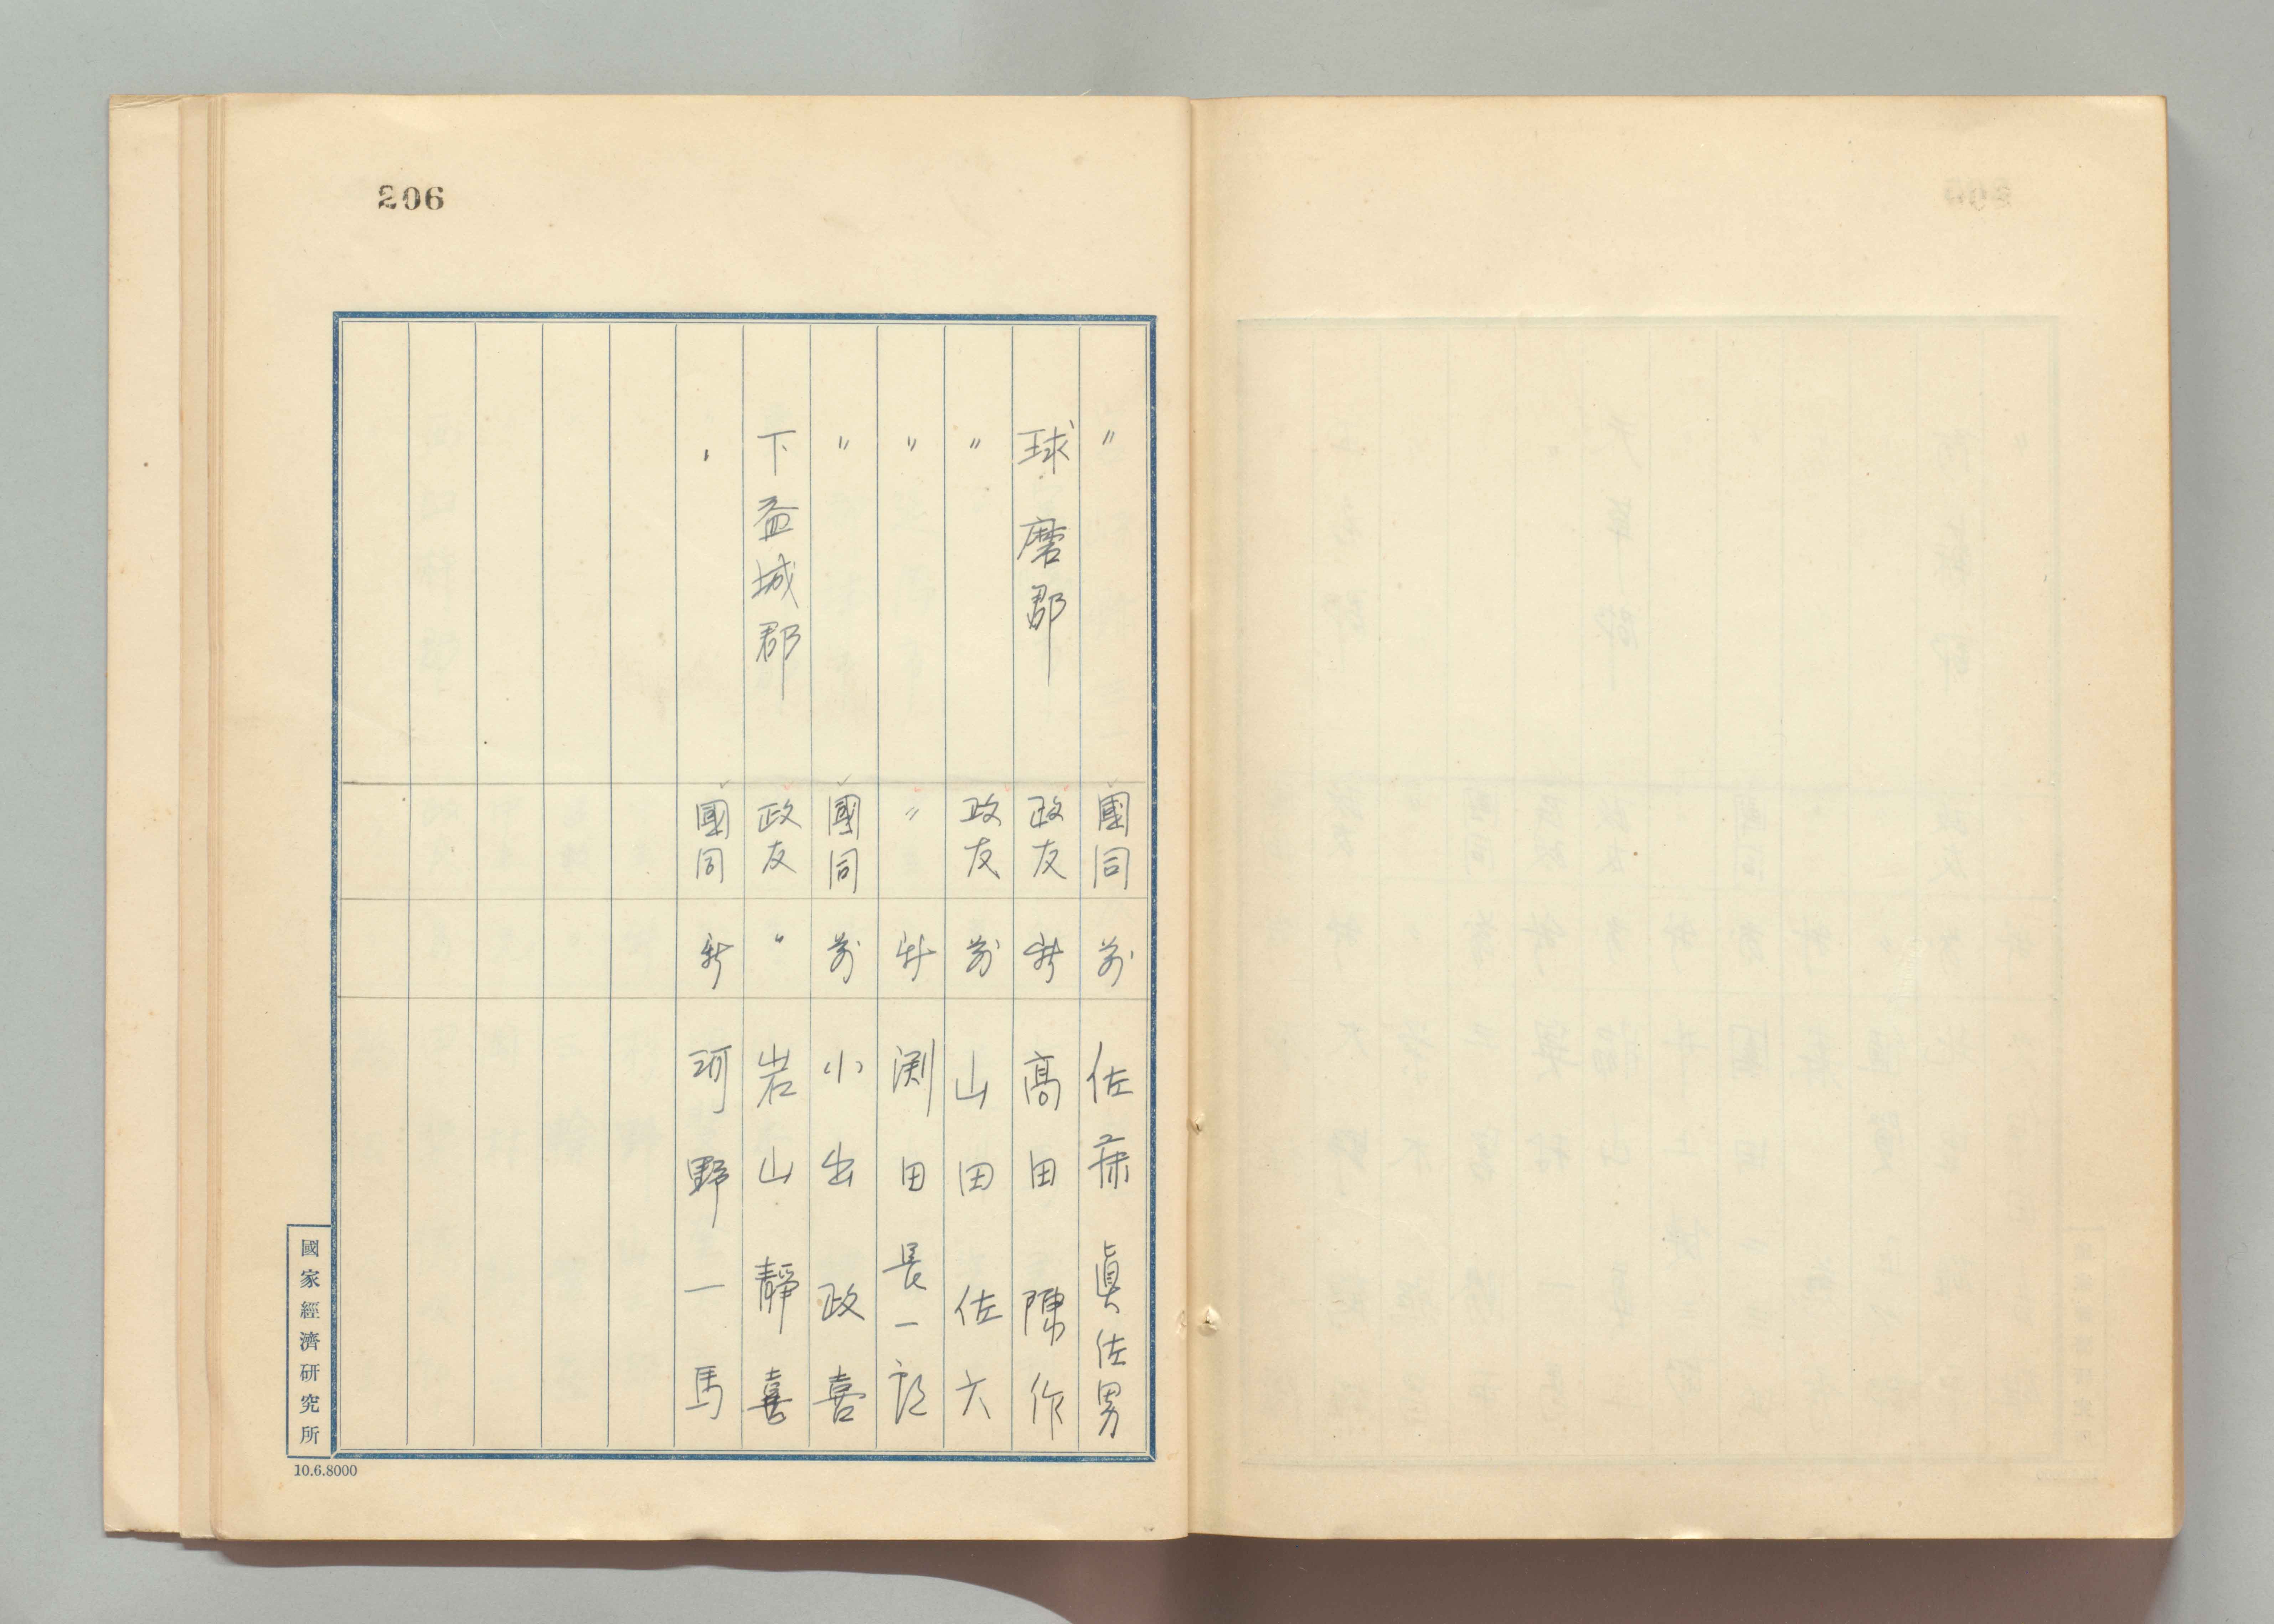 206
〃 國同 前 佐藤眞佐男
球磨郡 政友 新 高田陳作
〃 政友 前 山田佐六
〃 〃 新 渕田長一郎
〃 國同 前 小出政喜
下益城郡 政友 〃 岩山靜喜
〃 國同 新 河野一馬
國家經濟研究所
10.6.8000